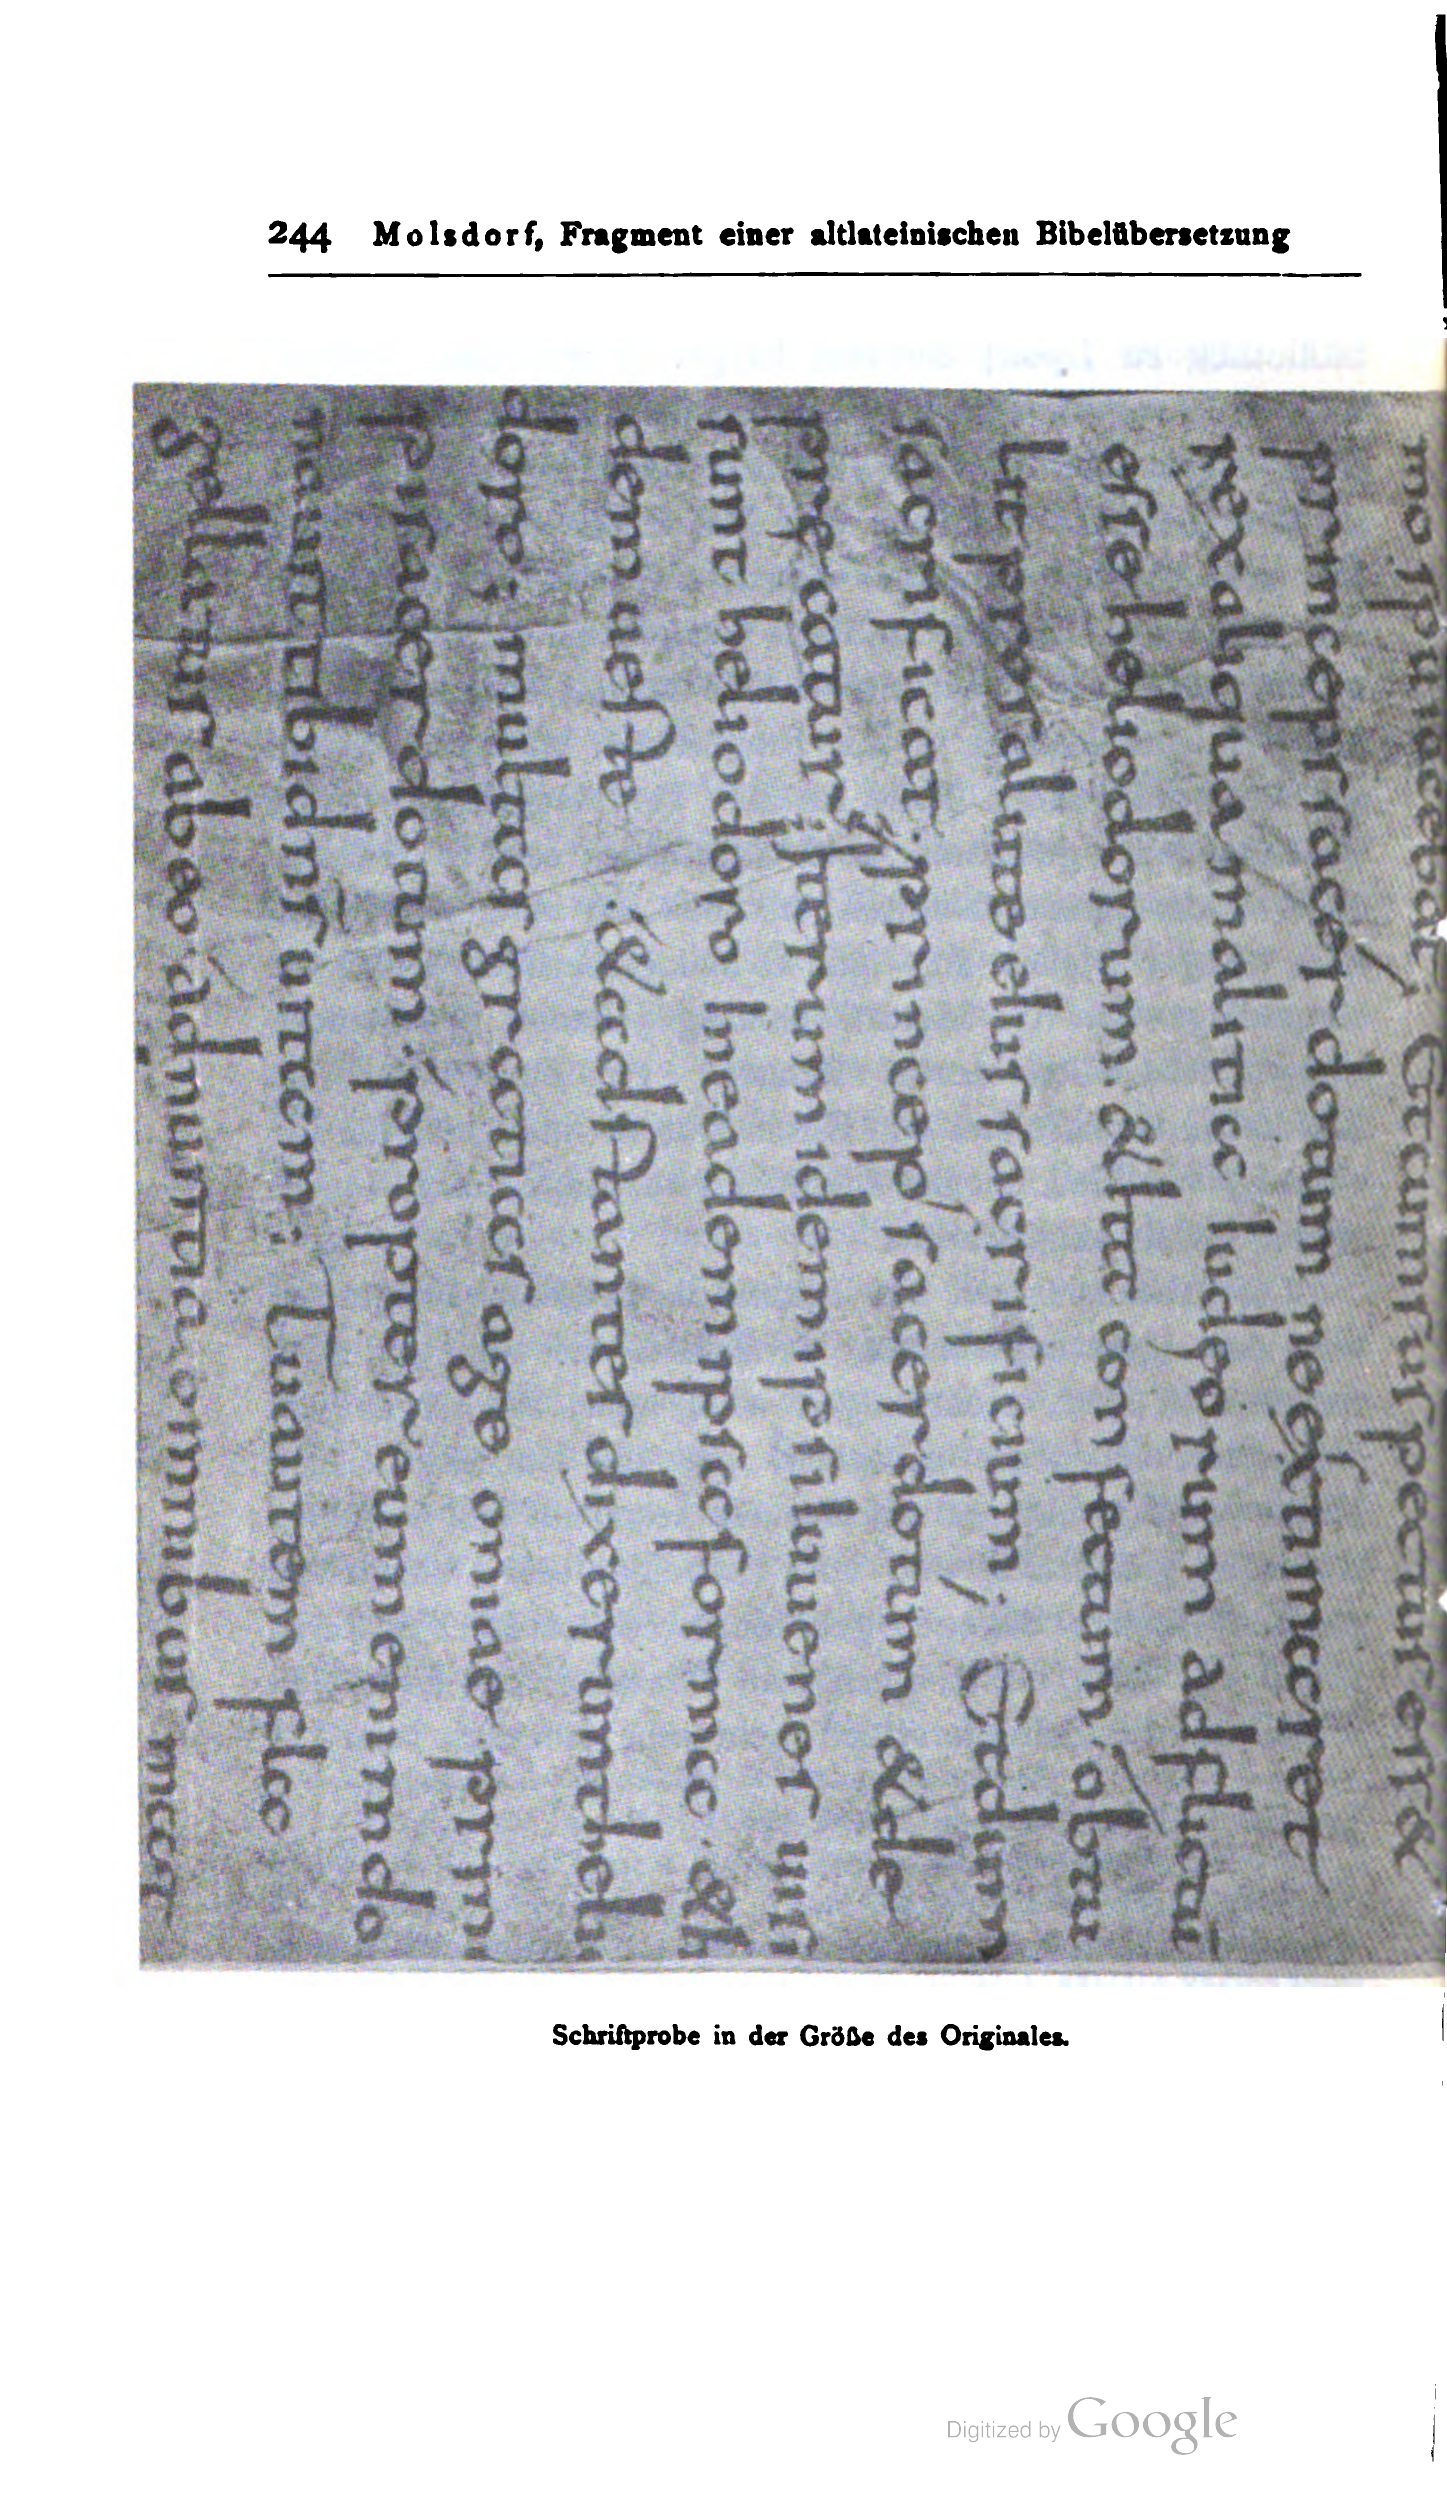 244 Molsdorf, Fragment einer altlateinischen Bibelübersetzung
mo spu iacebat; Cum suspectus est &
princeps sacerdotum ne existimaret
rex aliqua malitia iudeorum ad fuit
este heliodorum. & hac con secum obtu
lit pro salute eius sacrificium; Et dum
sacrificat princeps sacerdotum & de
precatur; iterum idem ipsi iuuenes uisi
sunt heliodoro in eadem ipsa forma. & h
dem ueste. & adstantes dixerunt heli
doro; multas gratias age oniae prin
pi sacerdotum. propter eum enim do
nauit tibi dns uitam; Tu autem fla
gellatus ab eo adnuntia omnibus mag
Schriftprobe in der Größe des Originales.
Digitized by Google